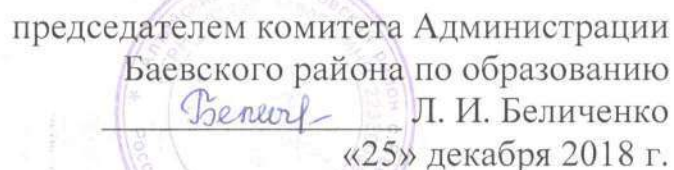 председателем комитета Администрации
Баевского района по образованию
Л. И. Беличенко
«25» декабря 2018 г.